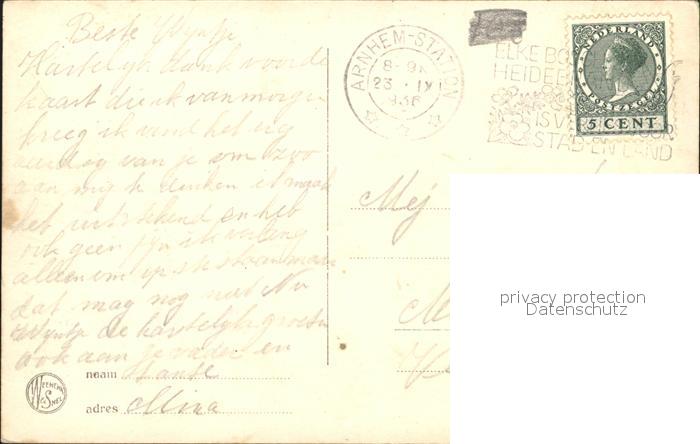 Beste Wijntje
Hartelijk dank voor de
kaart die ik van morgen
kreeg ik vind het erg
aardig van je om zoo
aan mij te denken ik maak
het uitstekend en heb
ook geen pijn ik verlang
alleen om op sta
dat mag nog niet Nu
Wijntje de hartelijke groeten
ook aan je vader en
naam Tante
adres Mina
WEENENK & SNEL
ARNHEM-STATION
23 IX
1936
ELKE BO
HEIDEB
IS V
STAD EN LAND
NEDERLAND
POSTZEGEL
5 CENT
Mej
privacy protection
Datenschutz